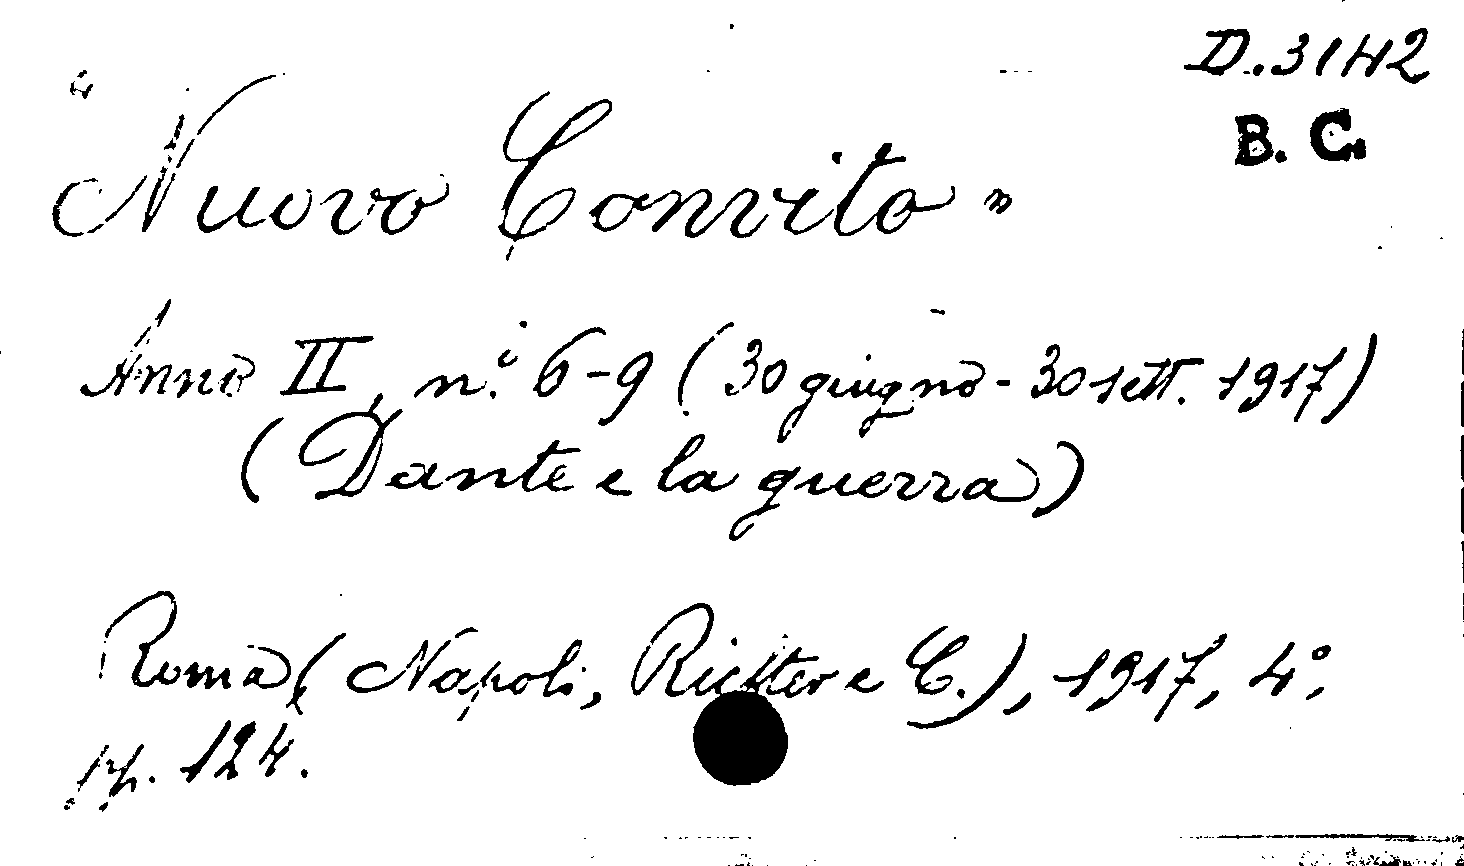 D. 3142
B. C.
"Nuovo Convito"
Anno II, n.i 6-9 (30 giugno - 30 sett. 1917)
(Dante e la guerra)
Roma (Napoli, Richter e C.), 1917, 4°,
pp. 124.